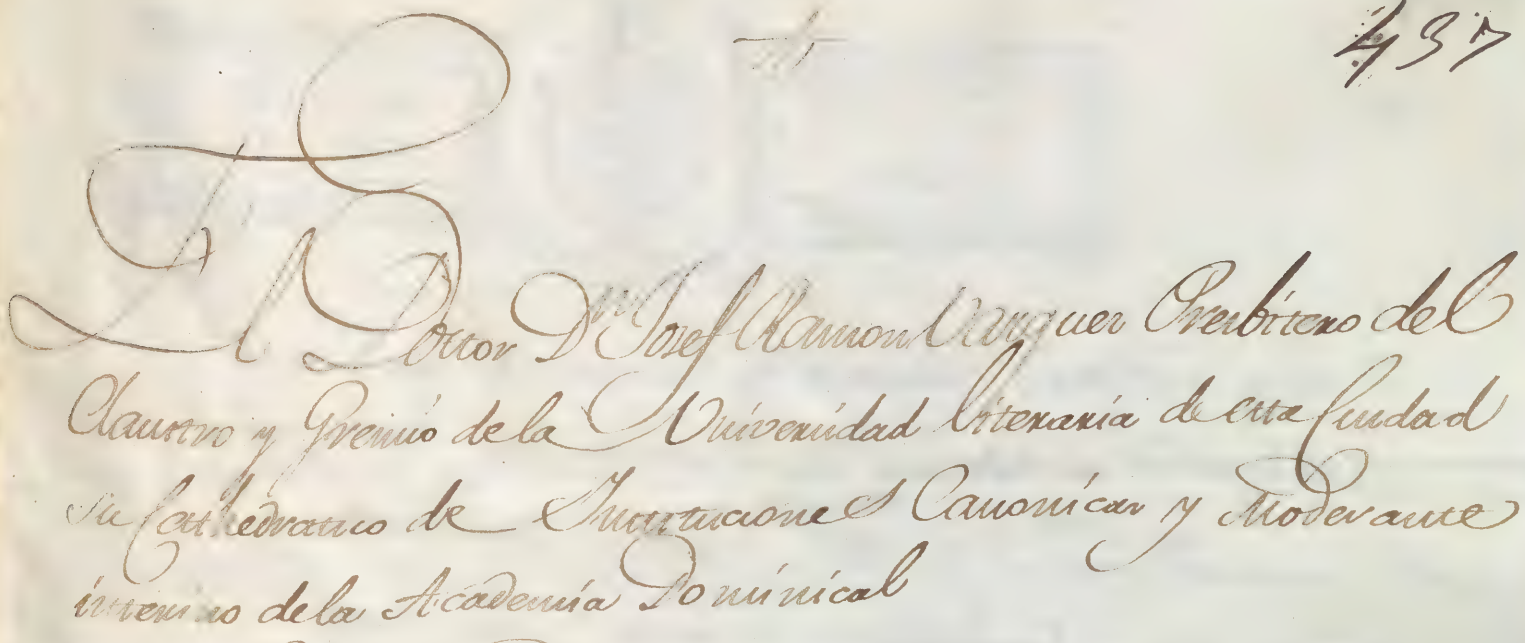 437
El Dottor Dn Josef Ramon Vazquez Presbitero del
Claustro y Gremio de la Universidad literaria de esta Ciudad
su Cathedratico de Instituciones Canonicas y Moderante
interino de la Academia Dominical